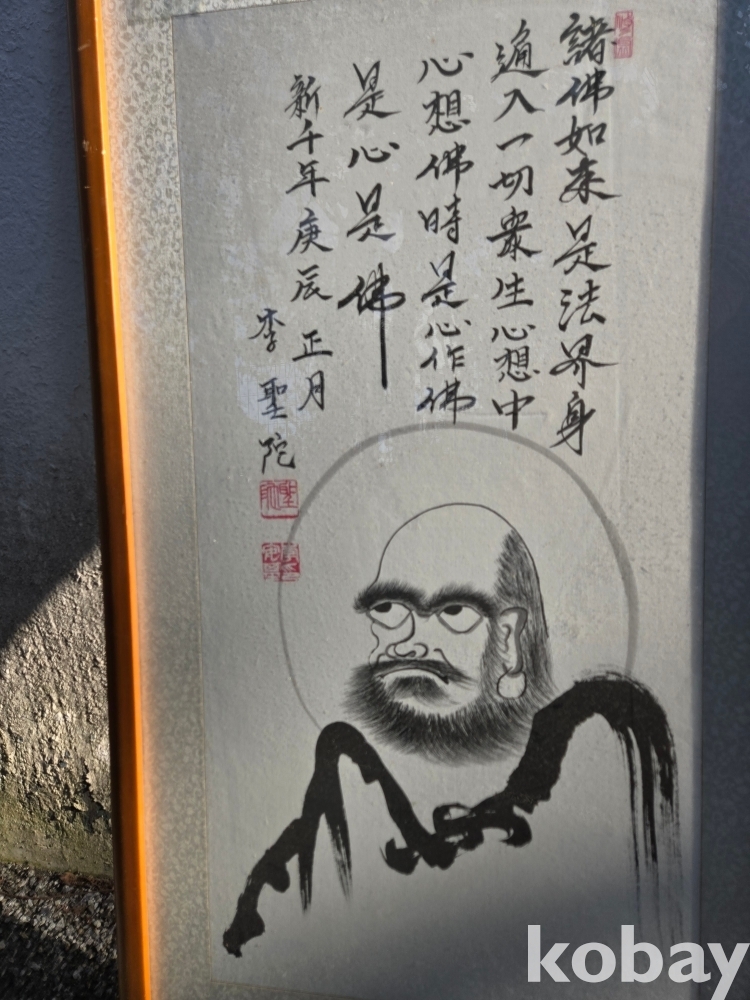 諸佛如來是法界身
遍入一切衆生心想中
心想佛時是心作佛
是心是佛
新千年庚辰 正月
李聖陀
kobay